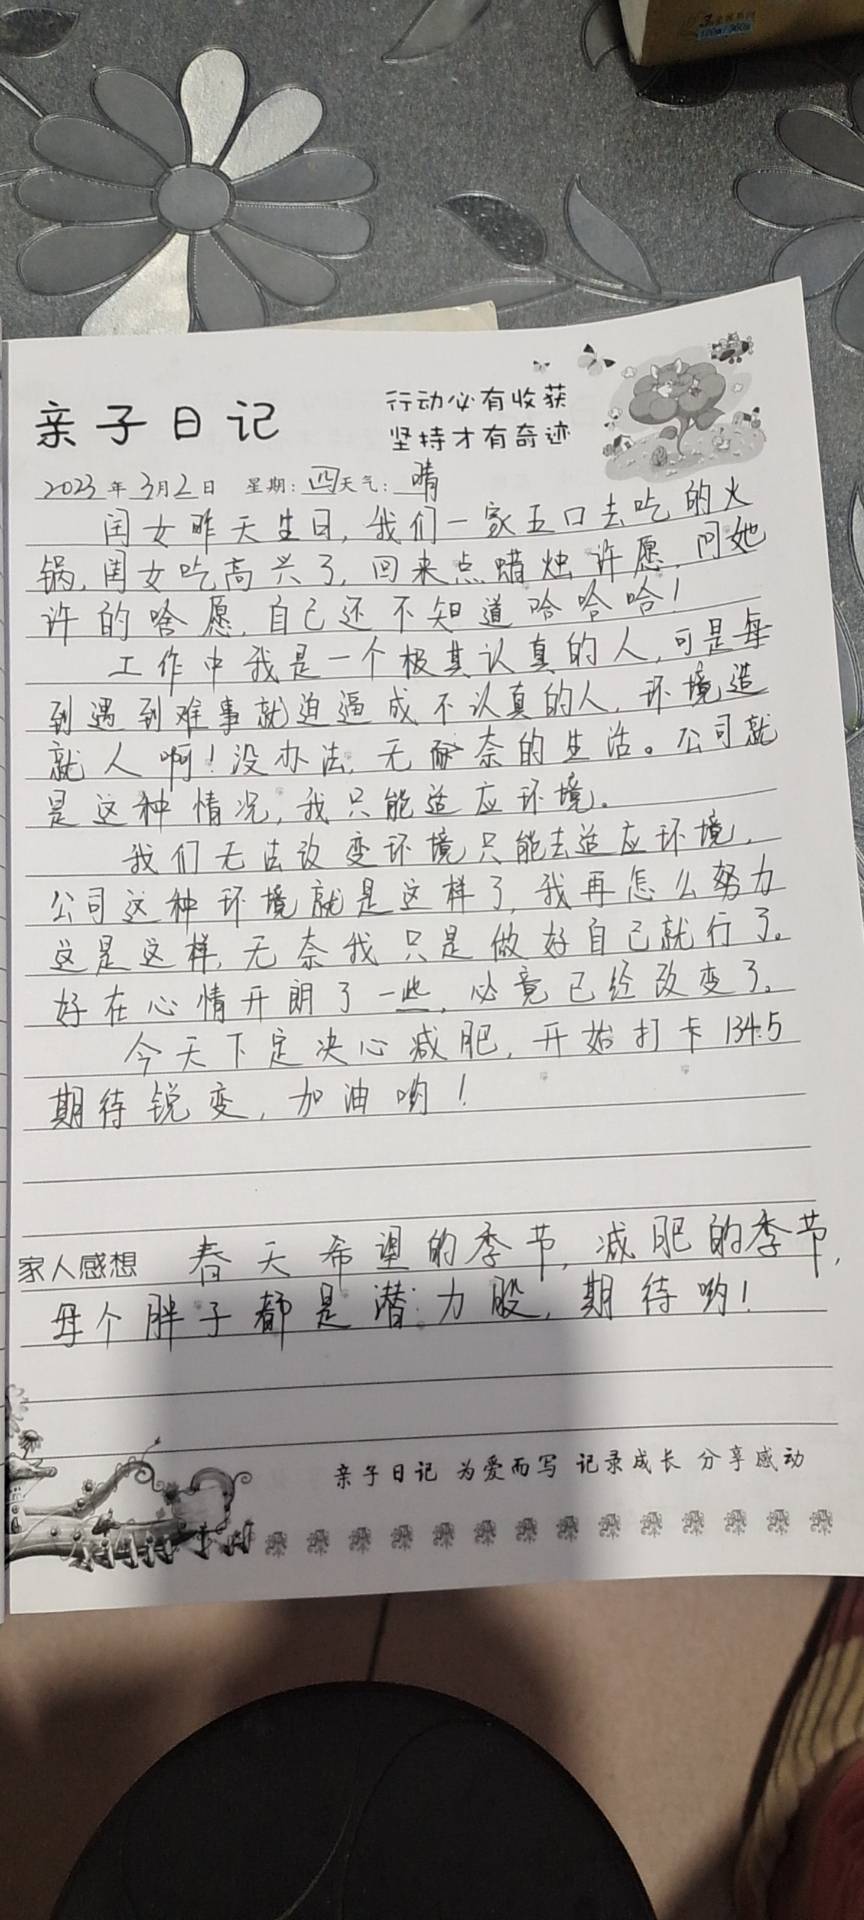 亲子日记
行动必有收获
坚持才有奇迹
2023年3月2日 星期:四天气:晴
闺女昨天生日,我们一家五口去吃的火
锅,闺女吃高兴了,回来点蜡烛许愿,问她
许的啥愿,自己还不知道哈哈哈!
工作中我是一个极其认真的人,可是每
到遇到难事就迫逼成不认真的人,环境造
就人啊!没办法,无耐奈的生活。公司就
是这种情况,我只能适应环境。
我们无法改变环境只能去适应环境,
公司这种环境就是这样了,我再怎么努力
这是这样,无奈我只是做好自己就行了。
好在心情开朗了一些,必竟已经改变了。
今天下定决心减肥,开始打卡134.5
期待锐变,加油哟!
家人感想 春天希望的季节,减肥的季节,
每个胖子都是潜力股,期待哟!
亲子日记 为爱而写 记录成长 分享感动